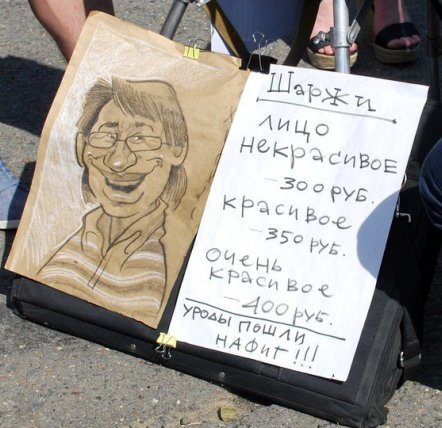 Шаржи
ЛИЦО
НЕКРАСИВОЕ
-300РУБ.
КРАСИВОЕ
-350РУБ.
ОЧЕНЬ
КРАСИВОЕ
-400РУБ.
УРОДЫ ПОШЛИ
НАФИГ!!!